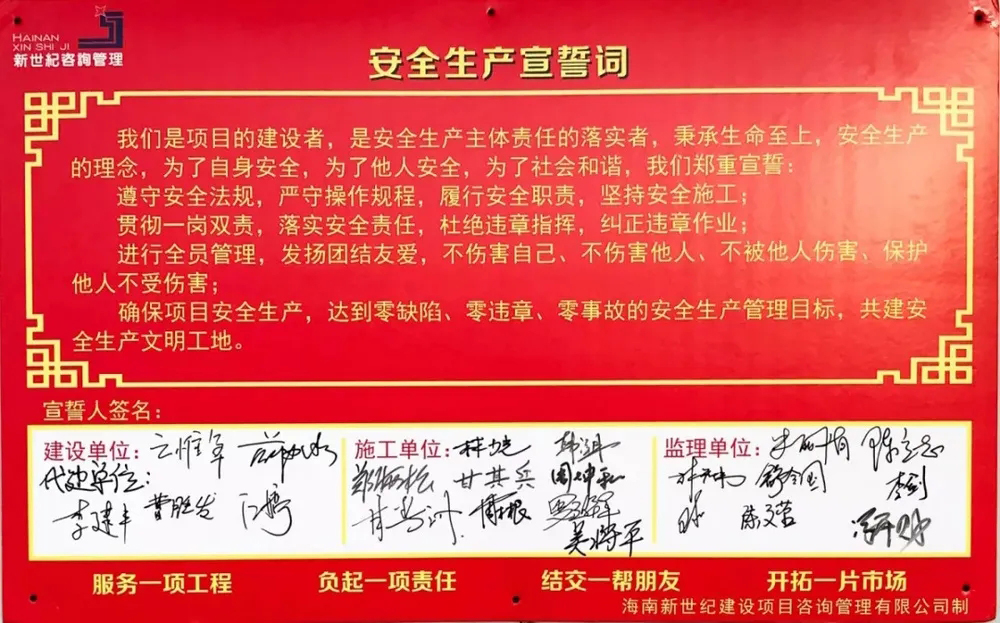 HAINAN
XIN SHI JI
新世紀咨詢管理
安全生产宣誓词
我们是项目的建设者，是安全生产主体责任的落实者，秉承生命至上，安全生产
的理念，为了自身安全，为了他人安全，为了社会和谐，我们郑重宣誓：
遵守安全法规，严守操作规程，履行安全职责，坚持安全施工；
贯彻一岗双责，落实安全责任，杜绝违章指挥，纠正违章作业；
进行全员管理，发扬团结友爱，不伤害自己、不伤害他人、不被他人伤害、保护
他人不受伤害；
确保项目安全生产，达到零缺陷、零违章、零事故的安全生产管理目标，共建安
全生产文明工地。
宣誓人签名：
建设单位：
代建单位：
李建丰 曹胜发
施工单位：
甘其兵
吴将平
监理单位：
李剑
陈文营
服务一项工程 负起一项责任 结交一帮朋友 开拓一片市场
海南新世纪建设项目咨询管理有限公司制